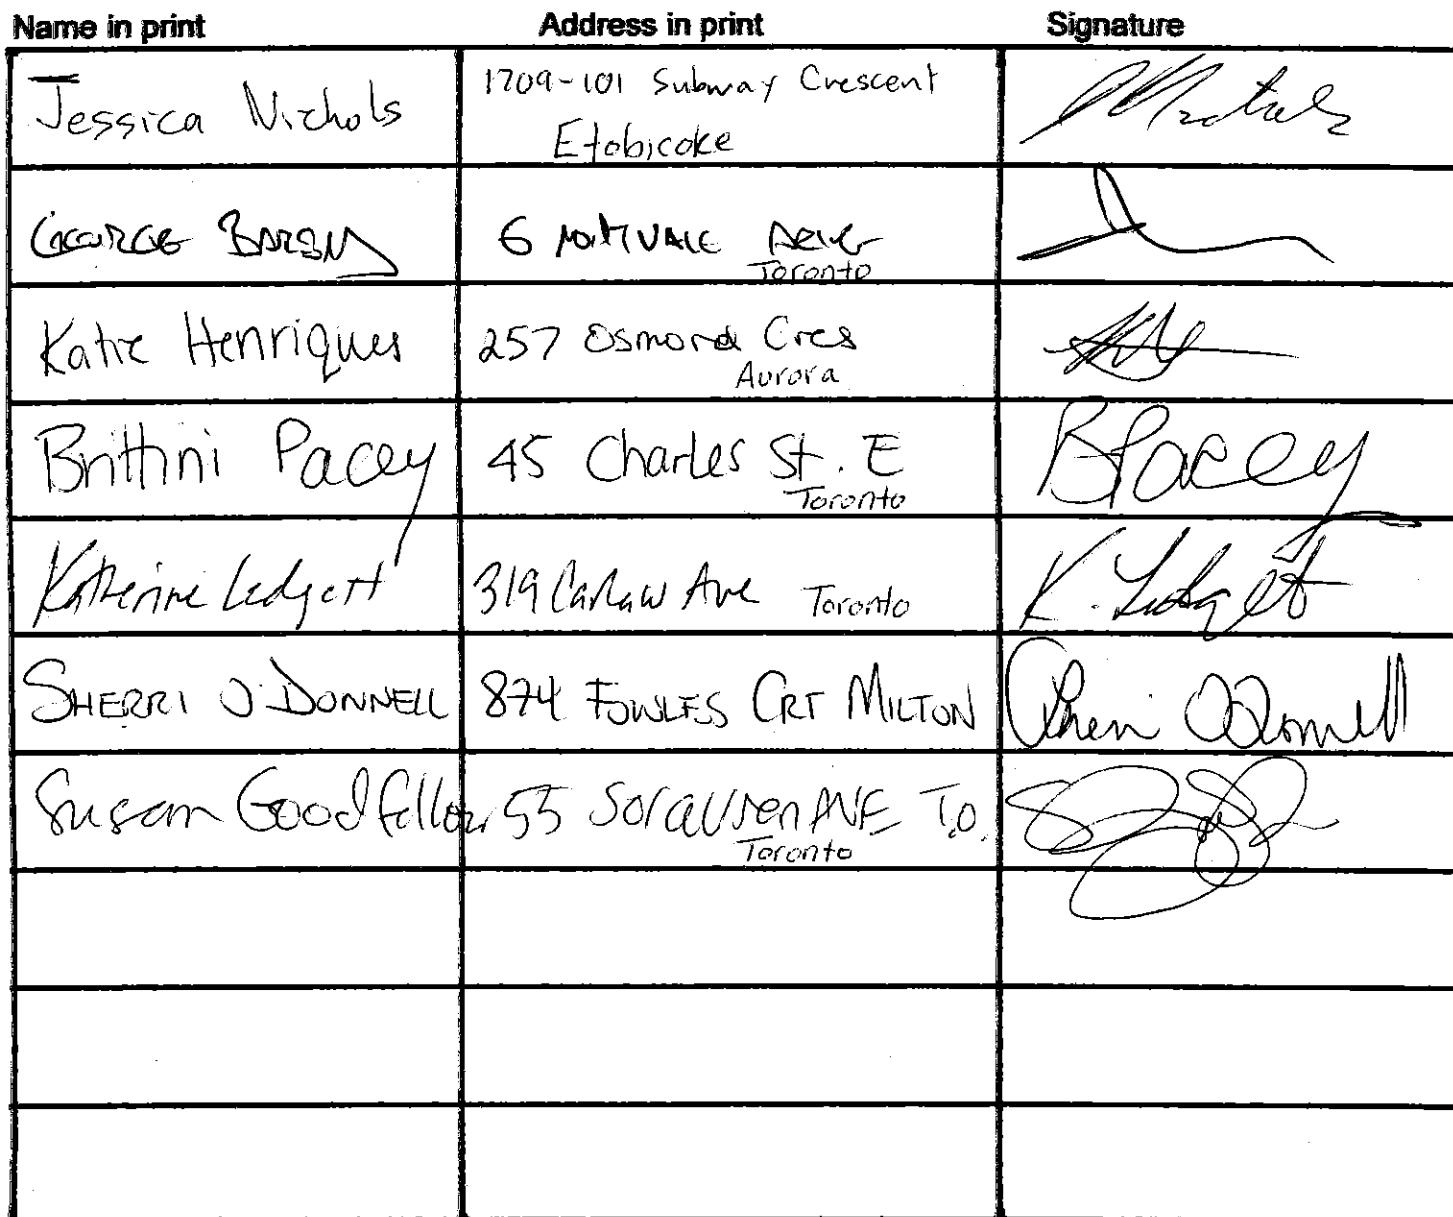 Name in print Address in print Signature
Jessica Nichols 1709-101 Subway Crescent
Etobicoke
George 6 
Toronto
Katie Henriques 257 Osmond Cres
Aurora
Brittini Pacey 45 Charles St. E BPacey
Toronto
Katherine Ledgett 319 Carlaw Ave Toronto K. Ledgett
SHERRI O'DONNELL 874 FOWLES CRT MILTON Sherri O'Donnell
Susan Goodfellow 55 Sorauren AVE T.O.
Toronto